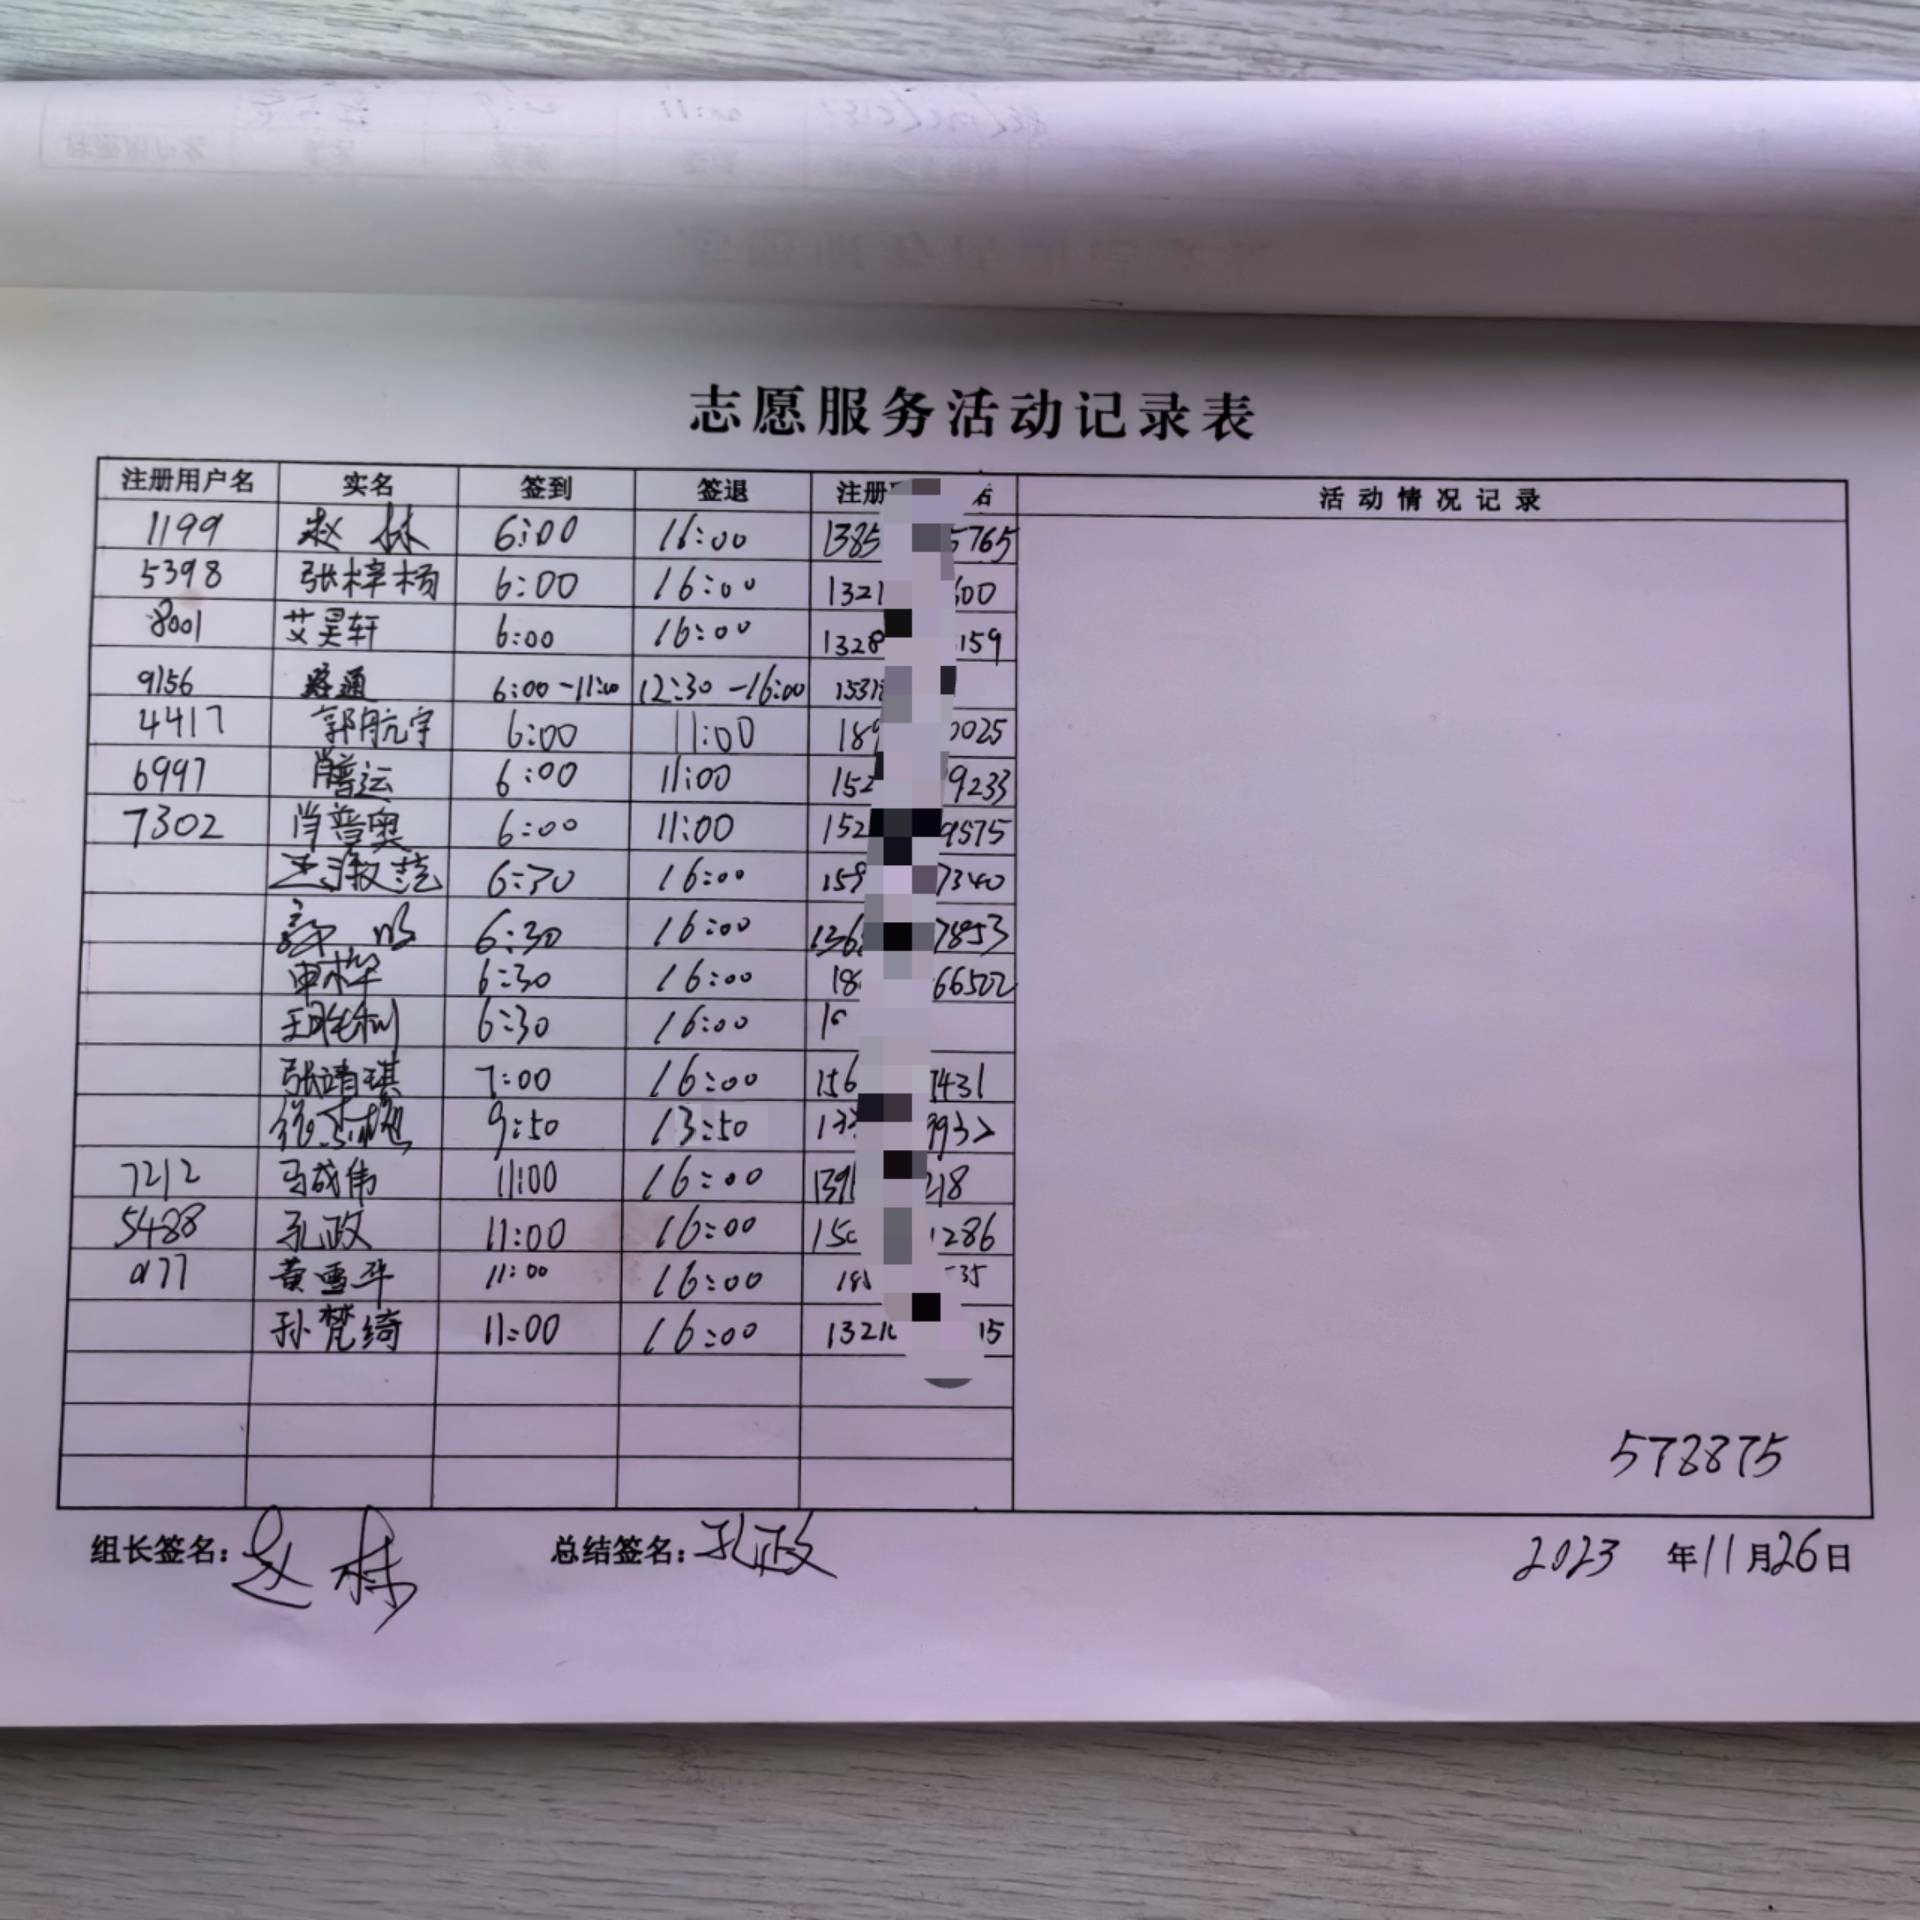 志愿服务活动记录表
注册用户名 实名 签到 签退 注册 活动情况记录
1199 赵林 6:00 16:00 1385 5765
5398 张梓杨 6:00 16:00 1321 600
8001 艾昊轩 6:00 16:00 1328 159
9156 路通 6:00-11:00 12:30-16:00 1531
4417 郭航宇 6:00 11:00 189 0025
6997 肖普运 6:00 11:00 152 9233
7302 肖普奥 6:00 11:00 152 9575
6:30 16:00 159 7340
许鸣 6:30 16:00 136 7853
申桦 6:30 16:00 18 66502
6:30 16:00
张靖琪 7:00 16:00 156 7431
9:50 13:50 13 993
7212 马成伟 11:00 16:00 139 218
5488 孔政 11:00 16:00 150 1286
黄雪平 11:00 16:00 18 535
孙梵绮 11:00 16:00 1321 15
578875
组长签名:赵林 总结签名:孔政 2023 年11月26日